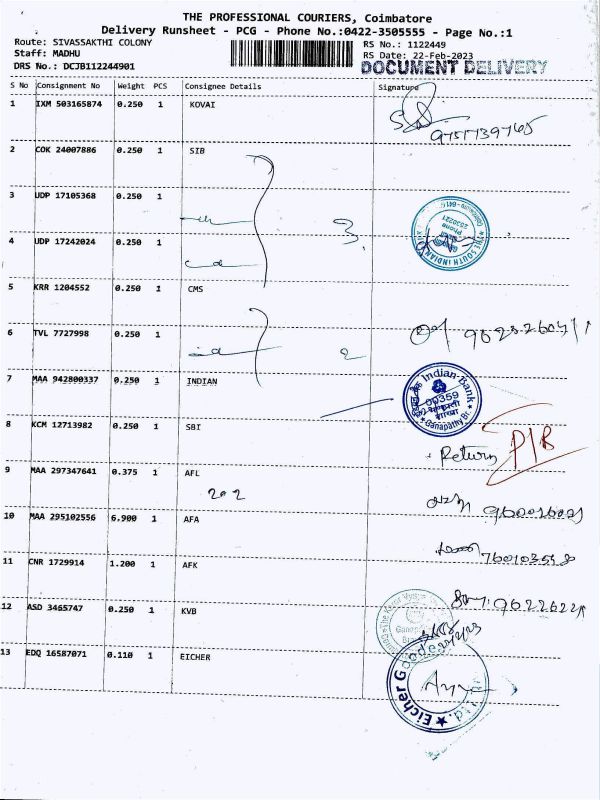 THE PROFESSIONAL COURIERS, Coimbatore
Delivery Runsheet - PCG - Phone No.:0422-3505555 - Page No.:1
Route: SIVASSAKTHI COLONY
Staff: MADHU
DRS No.: DCJB112244901
RS No.: 1122449
RS Date: 22-Feb-2023
DOCUMENT DELIVERY
S No Consignment No Weight PCS Consignee Details Signature
1 IXM 503165874 0.250 1 KOVAI
2 COK 24007886 0.250 1 SIB
3 UDP 17105368 0.250 1
3
4 UDP 17242024 0.250 1
5 KRR 1204552 0.250 1 CMS
6 TVL 7727998 0.250 1
2
7 MAA 942800337 0.250 1 INDIAN
Indian-Bank
00359
Ganapathy Br.
8 KCM 12713982 0.250 1 SBI
Return
9 MAA 297347641 0.375 1 AFL
202
10 MAA 295102556 6.900 1 AFA
11 CNR 1729914 1.200 1 AFK
12 ASD 3465747 0.250 1 KVB
13 EDQ 16587071 0.110 1 EICHER